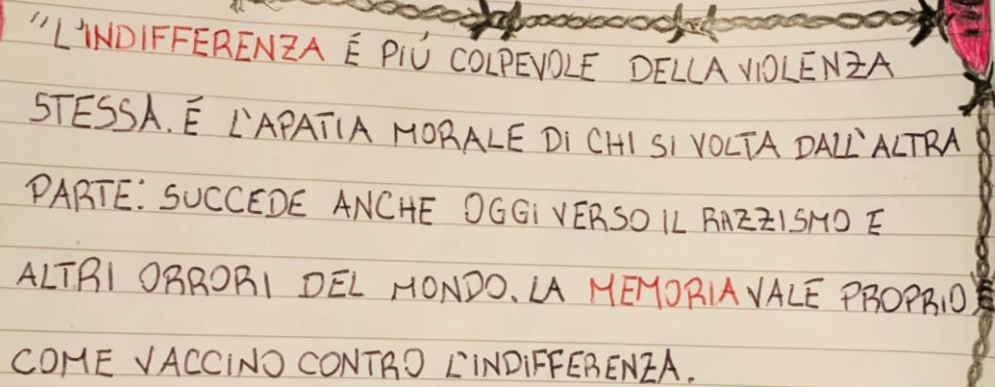 "L'INDIFFERENZA É PIÚ COLPEVOLE DELLA VIOLENZA
STESSA. É L'APATIA MORALE DI CHI SI VOLTA DALL'ALTRA
PARTE: SUCCEDE ANCHE OGGI VERSO IL RAZZISMO E
ALTRI ORRORI DEL MONDO. LA MEMORIA VALE PROPRIO
COME VACCINO CONTRO L'INDIFFERENZA.